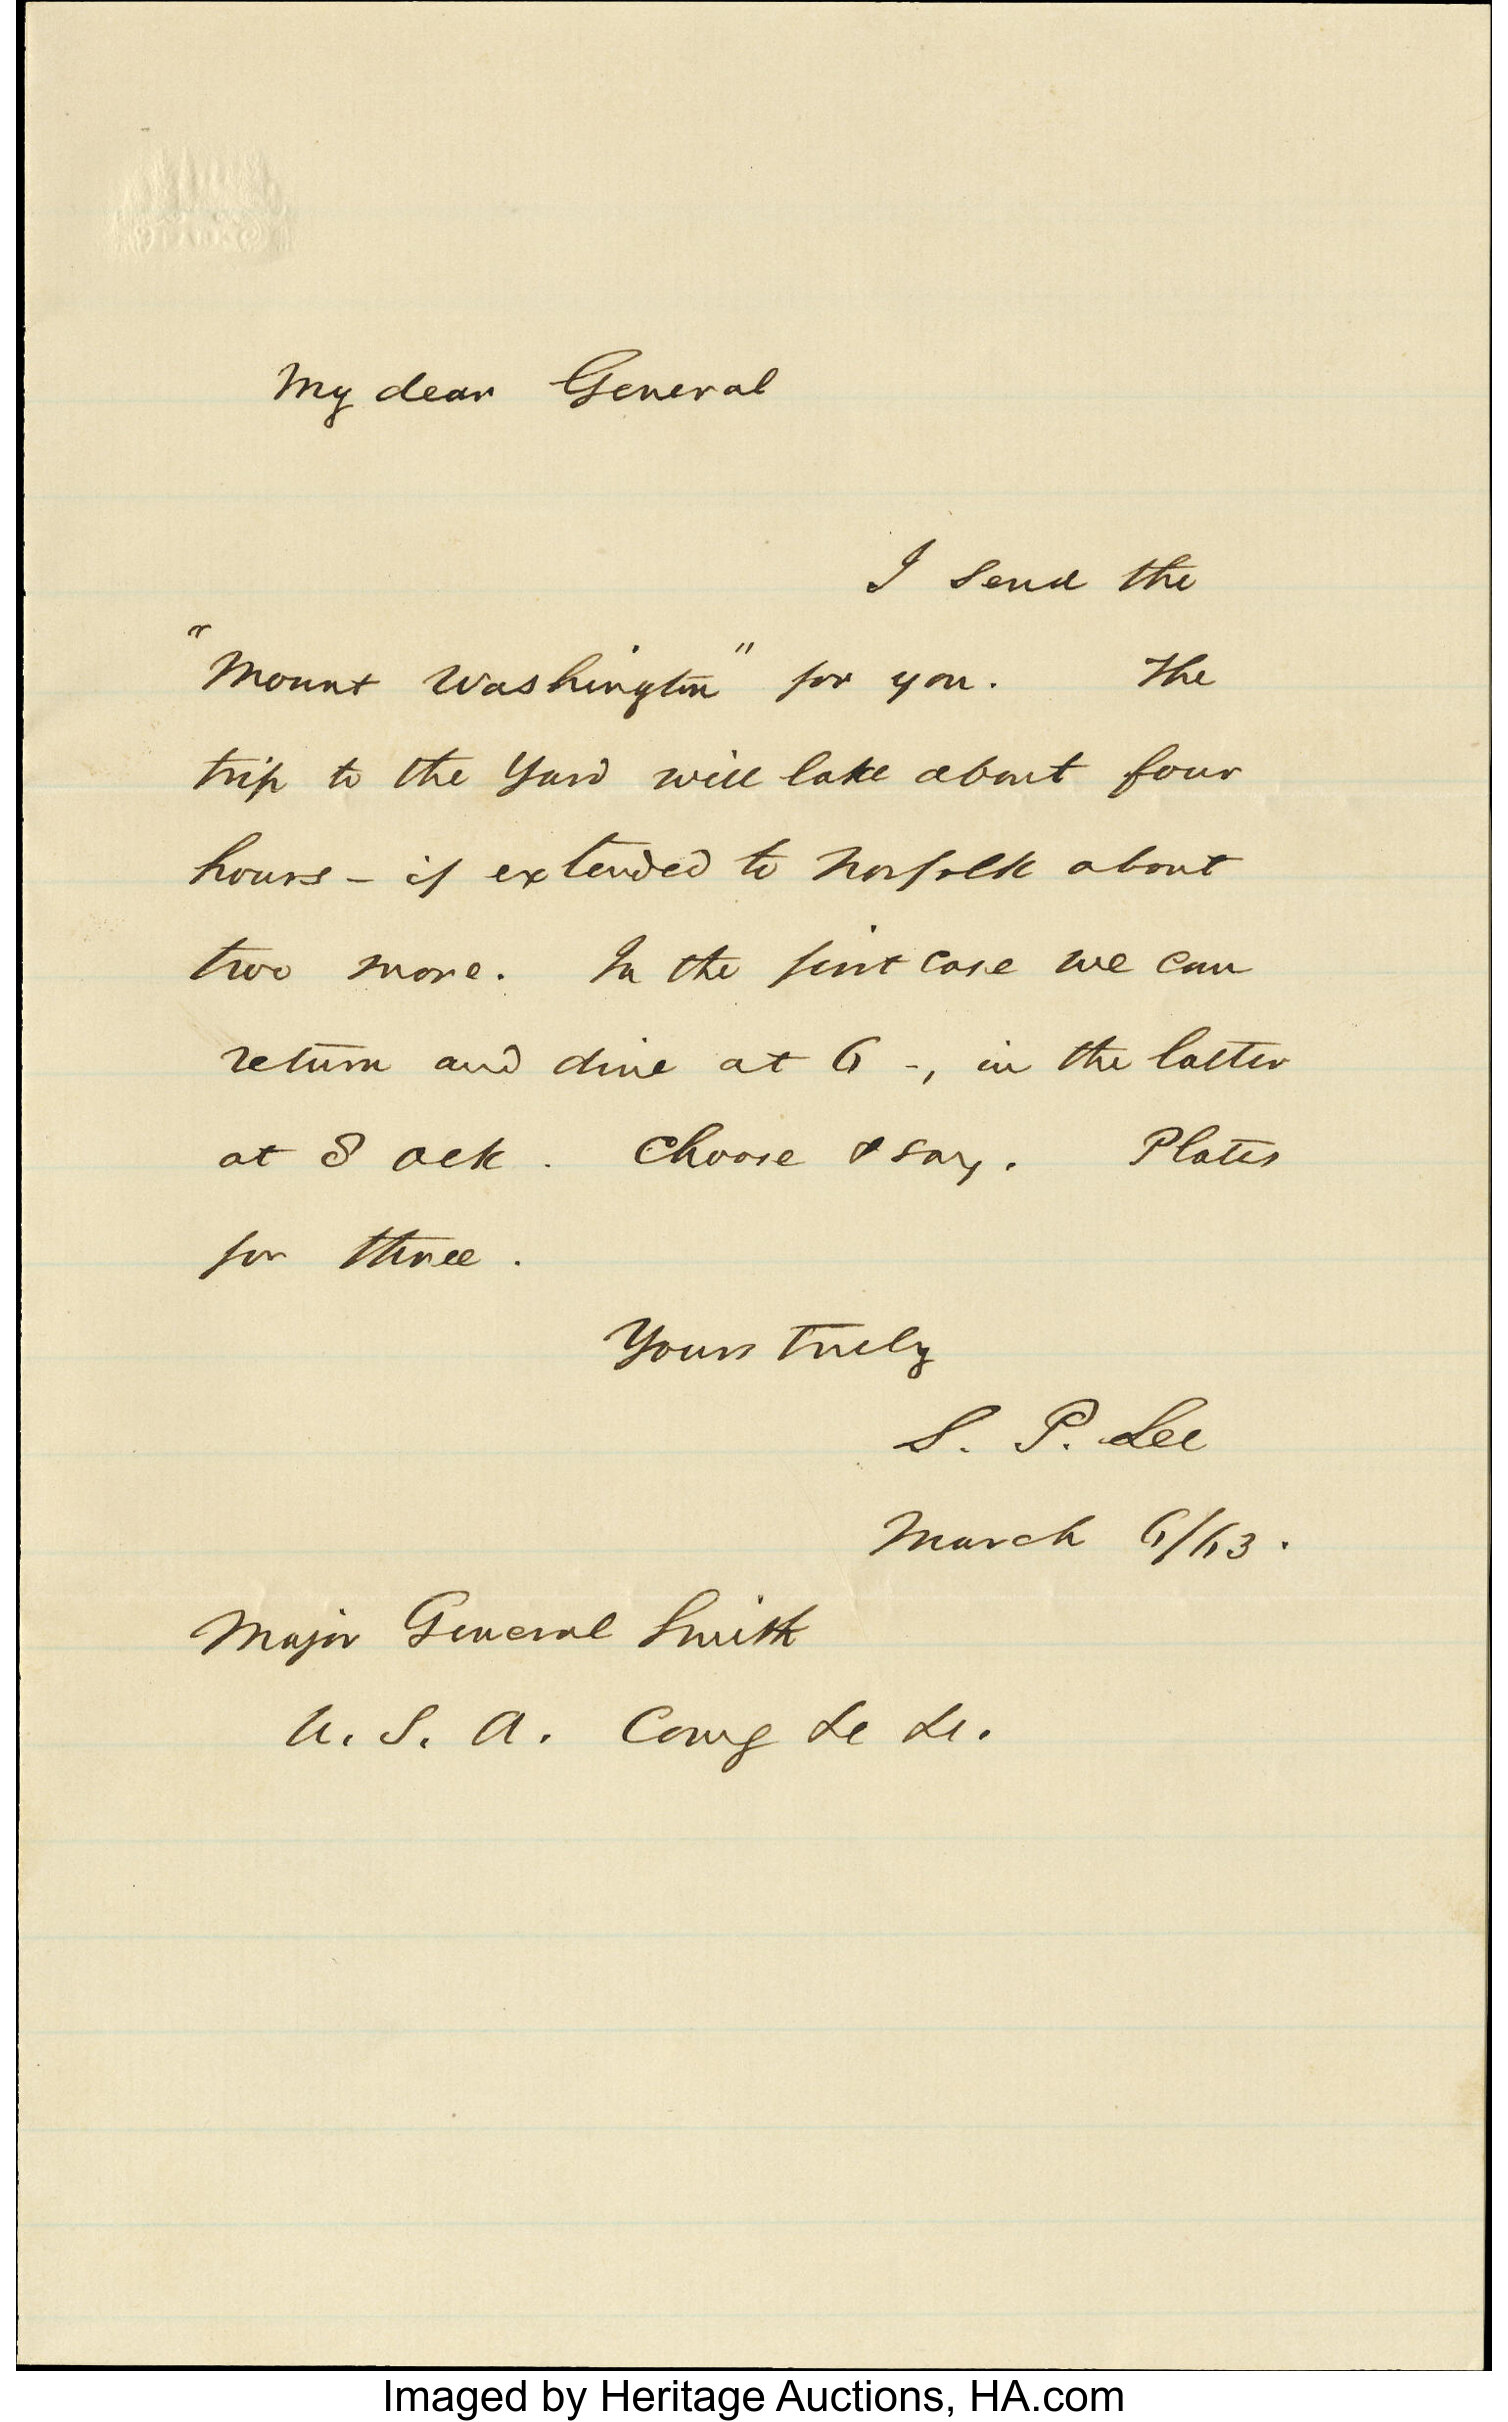 My dear General
I send the
"Mount Washington" for you. The
trip to the Yard will take about four
hours - if extended to Norfolk about
two more. In the first case we can
return and dine at 6 -, in the latter
at 8 ock. Choose & say. Plates
for three.
Yours truly
S. P. Lee
March 6/63.
Major General Smith
U. S. A. Comg &c &c.
Imaged by Heritage Auctions, HA.com